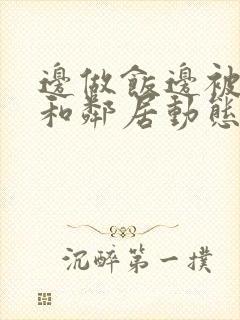 邊做飯邊被
和鄰居動態
沉醉第一撲